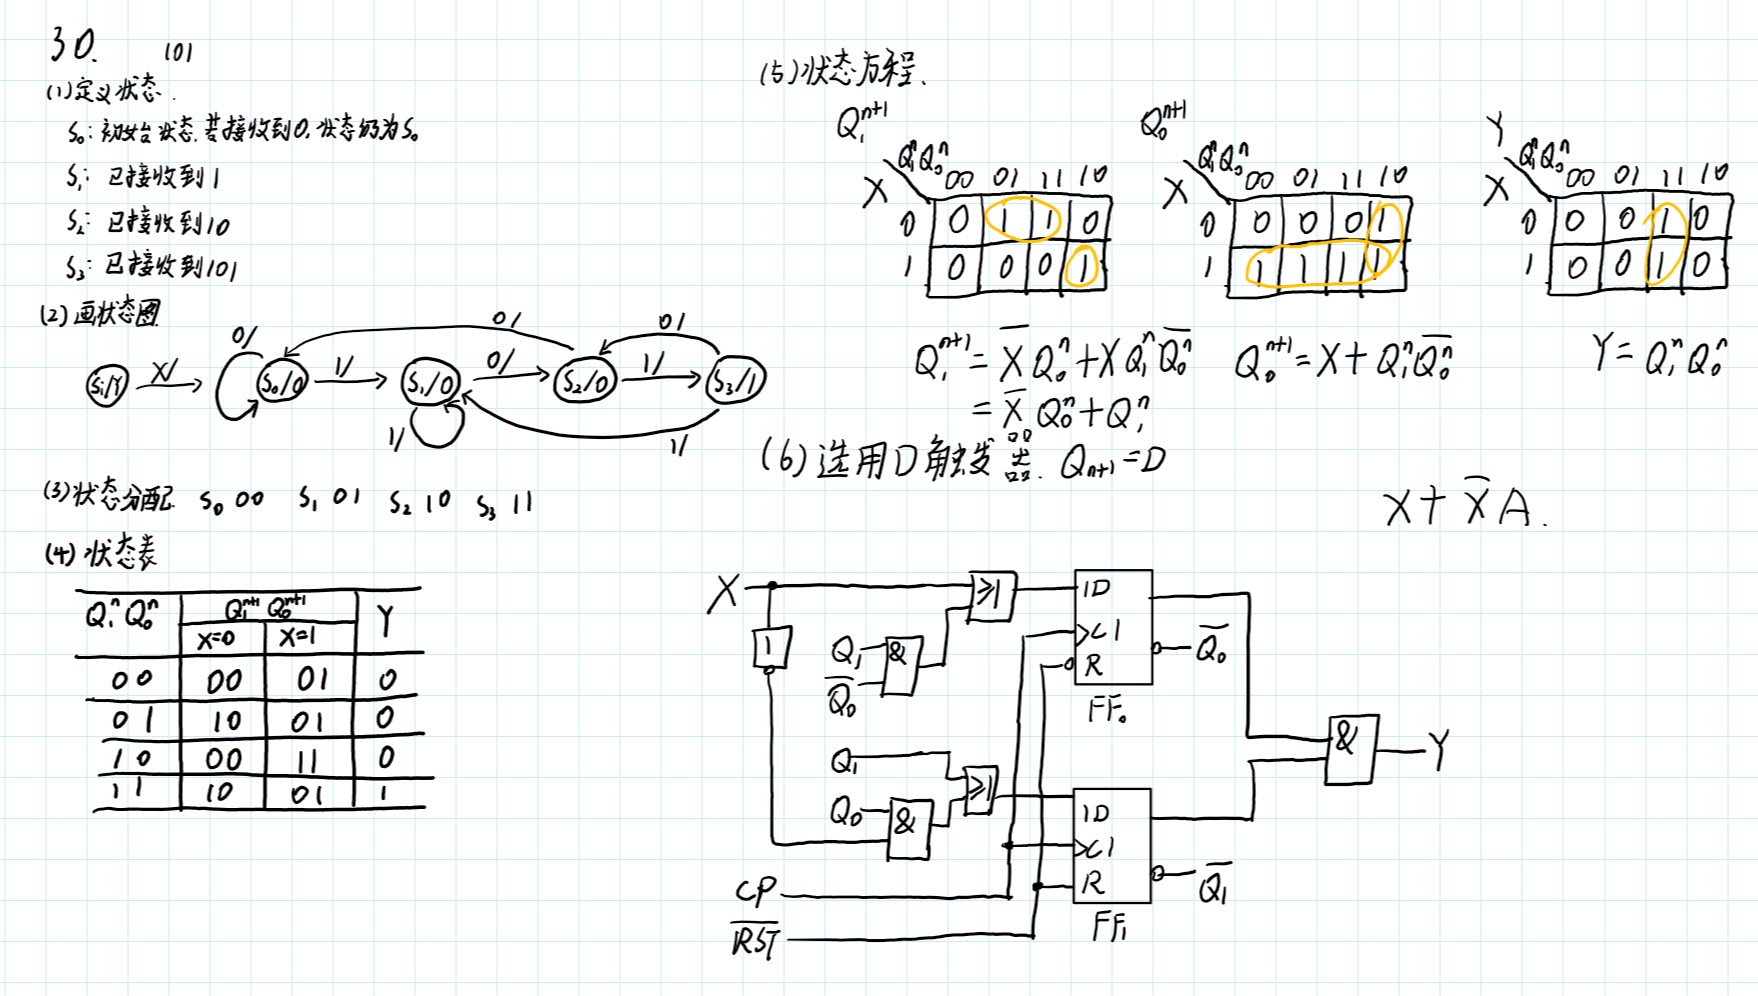 30. 101
(1)定义状态.
S₀: 初始状态.若接收到0,状态仍为S₀
S₁: 已接收到1
S₂: 已接收到10
S₃: 已接收到101
(2)画状态图
Si/Y X/ 0/ S₀/0 1/ S₁/0 0/ S₂/0 1/ S₃/1
0/ 0/
1/ 1/
(3)状态分配. S₀ 00 S₁ 01 S₂ 10 S₃ 11
(4)状态表
Q₁ⁿQ₀ⁿ Q₁ⁿ⁺¹ Q₀ⁿ⁺¹ Y
X=0 X=1
00 00 01 0
01 10 01 0
10 00 11 0
11 10 01 1
(5)状态方程.
Q₁ⁿ⁺¹
Q₁ⁿQ₀ⁿ 00 01 11 10
X
0 0 1 1 0
1 0 0 0 1
Q₀ⁿ⁺¹
Q₁ⁿQ₀ⁿ 00 01 11 10
X
0 0 0 0 1
1 1 1 1 1
Y
Q₁ⁿQ₀ⁿ 00 01 11 10
X
0 0 0 1 0
1 0 0 1 0
Q₁ⁿ⁺¹ = X̅Q₀ⁿ + XQ₁ⁿQ̅₀ⁿ
= X̅Q₀ⁿ + Q₁ⁿ
Q₀ⁿ⁺¹ = X + Q₁ⁿQ̅₀ⁿ
Y = Q₁ⁿQ₀ⁿ
(6)选用D触发器. Qn+1 = D
X + X̅A.
X ≥1 1D
1 Q₁ & C1 Q̅₀
Q̅₀ R
FF₀
& Y
Q₁ ≥1
Q₀ & 1D
C1
CP R Q̅₁
R̅S̅T̅ FF₁